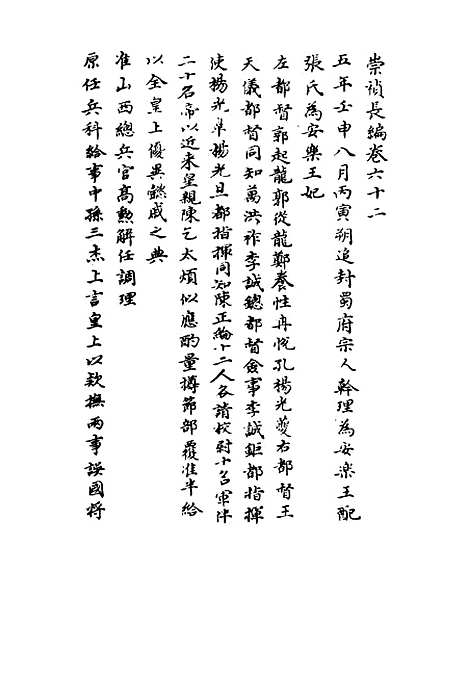 崇禎長編卷六十二
五年壬申八月丙寅朔追封蜀府宗人幹理為安樂王配
張氏為安樂王妃
左都督郭起龍郭從龍鄭養性冉悅孔楊光夔右都督王
天儀都督同知萬洪祚李誠鏓都督僉事李誠鉅都指揮
使楊光皋楊光旦都指揮同知陳正綸十二人各請校尉十名軍伴
二十名帝以近來皇親陳乞太煩似應酌量撙節部覆准半給
以全皇上優異懿戚之典
准山西總兵官高勲解任調理
原任兵科給事中孫三杰上言皇上以欵撫兩事誤國將